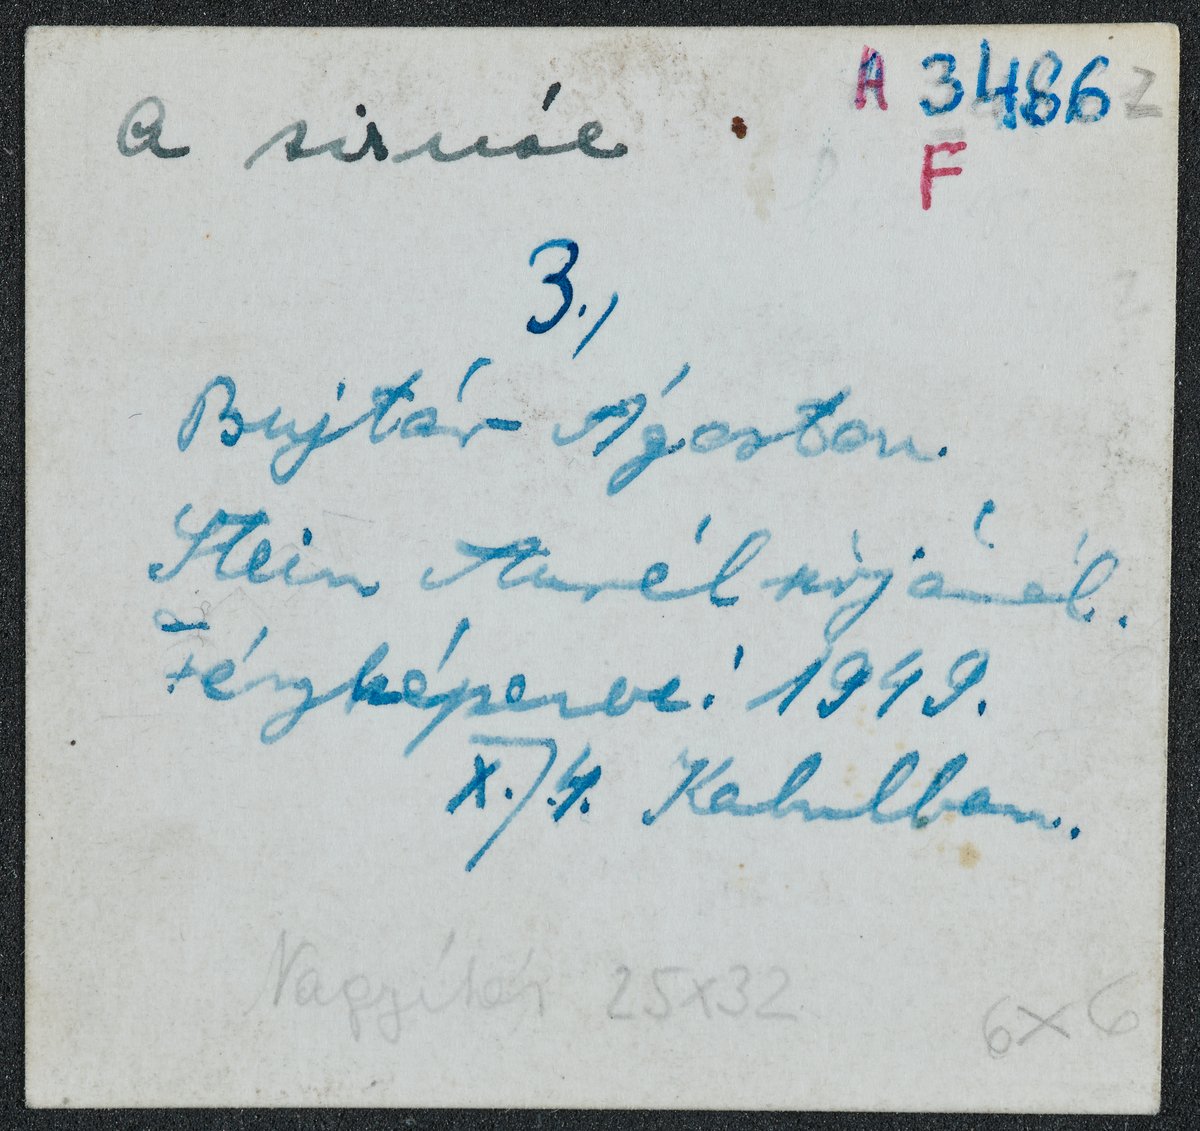 A 3486 2
F
A sirnál
3.,
Bujtár Ágoston.
Stein Aurél sírjánál.
Fényképezve: 1949.
X./4. Kabulban.
Nagyítás 25x32
6x6